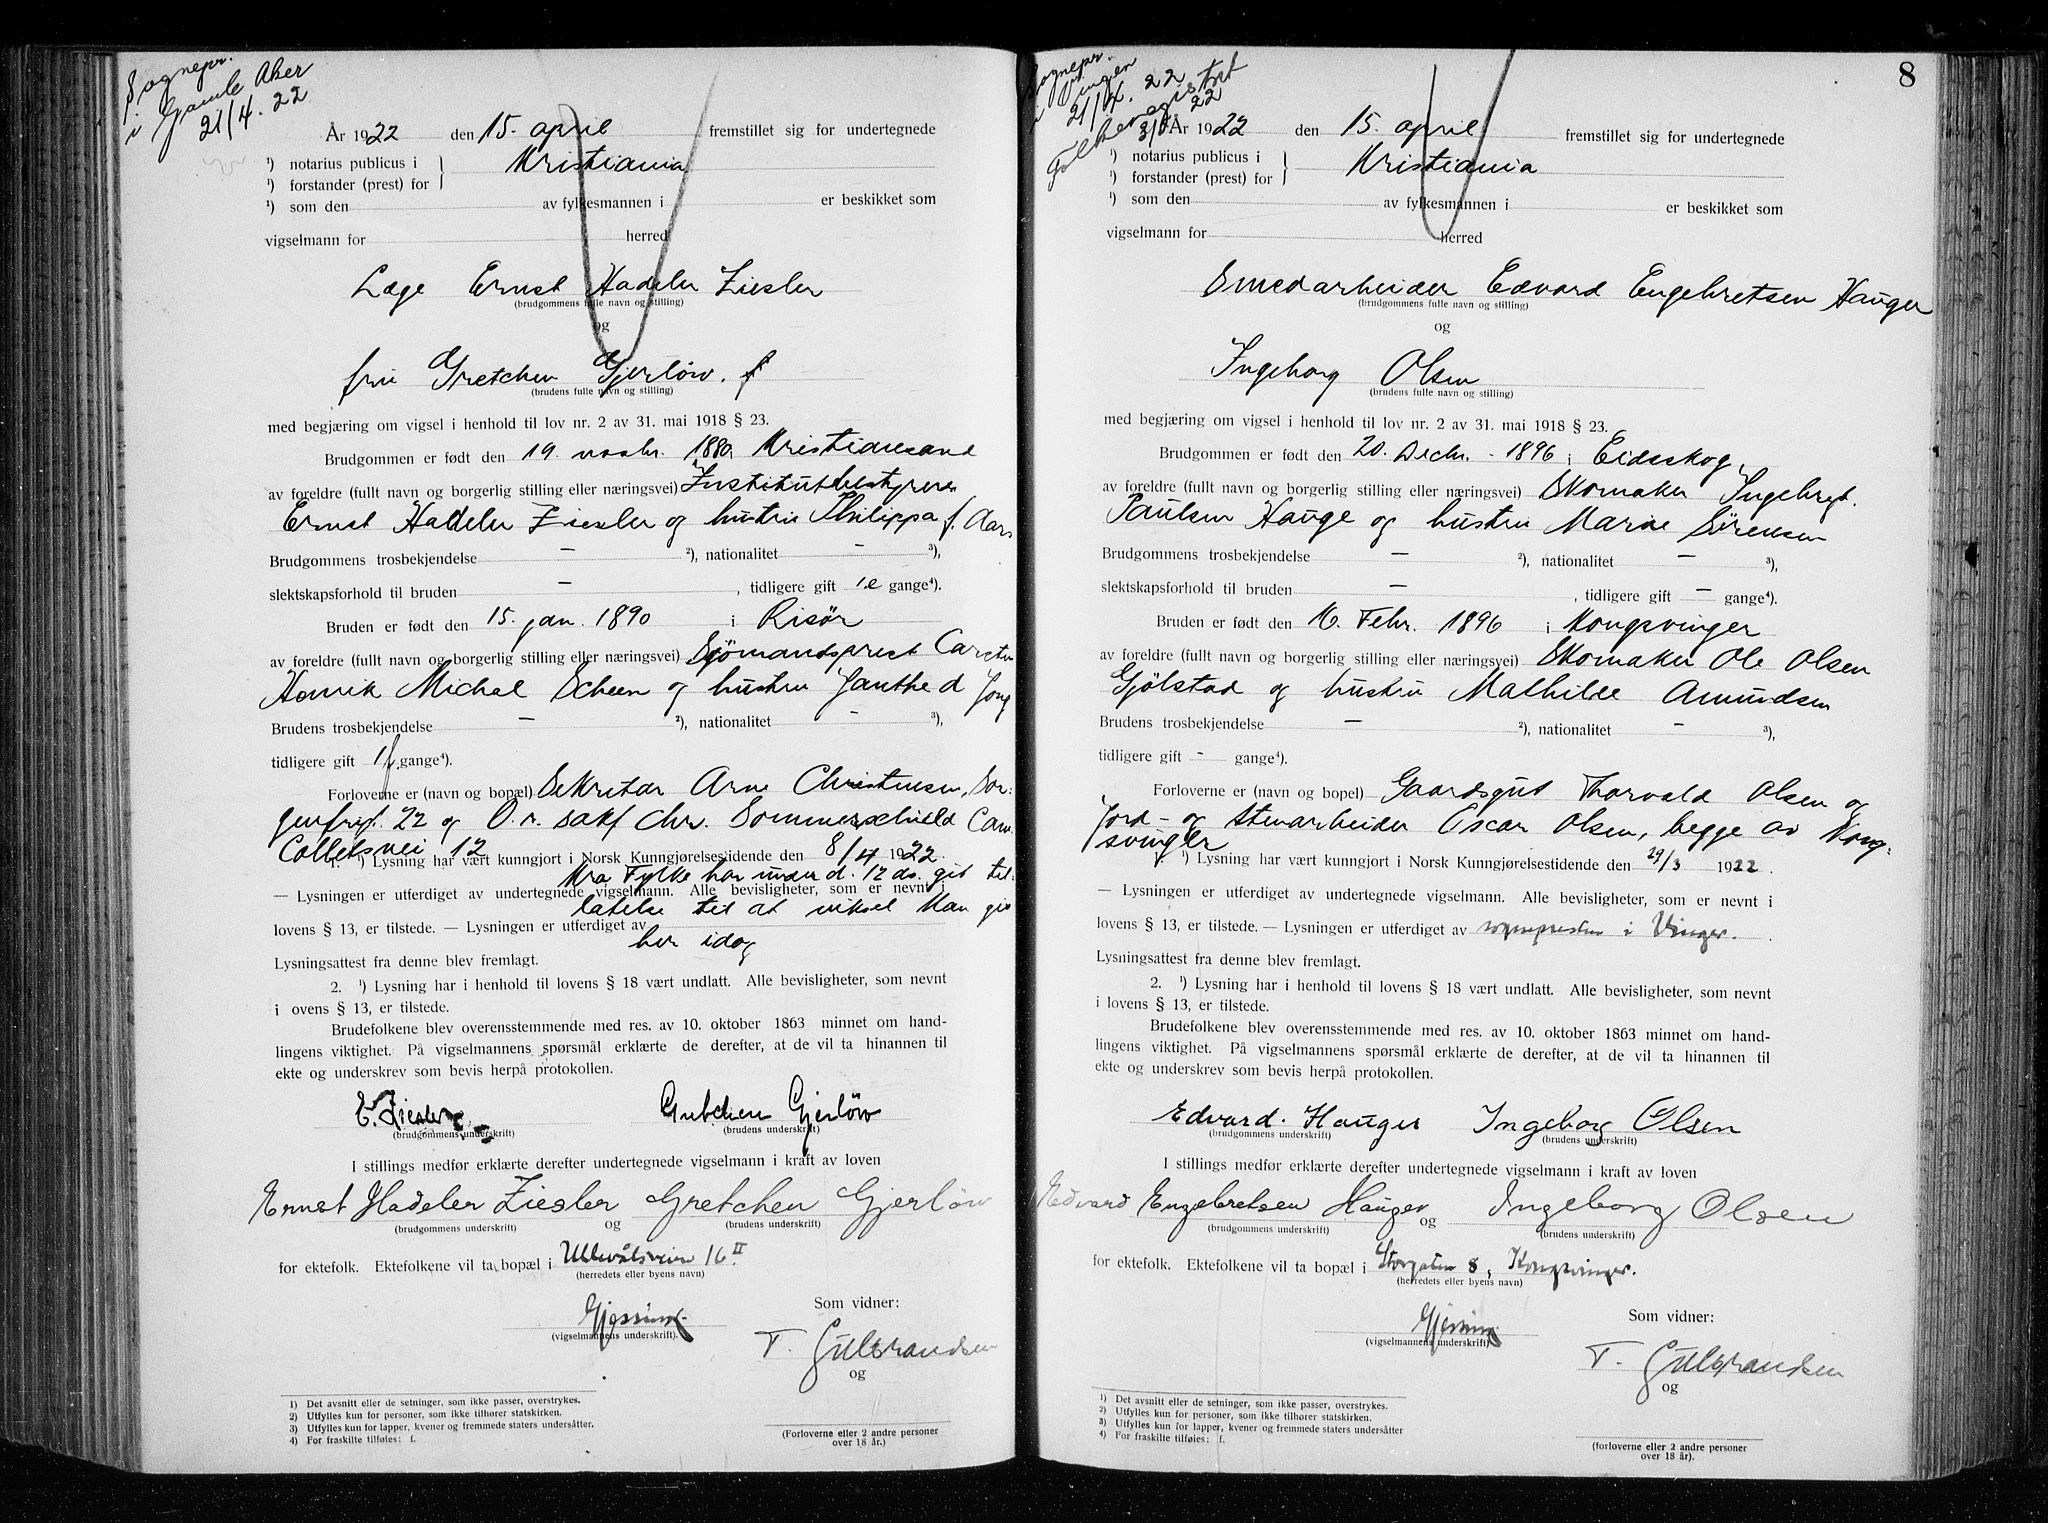 Sognepr.
i Gamle Aker
21/4. 22
År 1922 den 15. april fremstillet sig for undertegnede
¹) notarius publicus i
¹) forstander (prest) for
Kristiania
¹) som den av fylkesmannen i er beskikket som
vigselmann for herred
Læge Ernst Hadeler Ziesler
(brudgommens fulle navn og stilling)
og
fru Gretchen Gjerløw. f
(brudens fulle navn og stilling)
med begjæring om vigsel i henhold til lov nr. 2 av 31. mai 1918 § 23.
Brudgommen er født den 19. novbr. 1880 Kristiansand
av foreldre (fullt navn og borgerlig stilling eller næringsvei) Institutbestyrer
Ernst Hadeler Ziesler og hustru Philippa f. Aars
Brudgommens trosbekjendelse — ²), nationalitet — ³),
slektskapsforhold til bruden — , tidligere gift 1.e gange⁴).
Bruden er født den 15. jan. 1890 i Risør
av foreldre (fullt navn og borgerlig stilling eller næringsvei) Sjømandsprest Carsten
Henrik Michal Scheen og hustru Janthe d Jong
Brudens trosbekjendelse — ²), nationalitet — ³),
tidligere gift 1 f. gange⁴).
Forloverne er (navn og bopel) Sekretær Arne Christensen, Sor-
genfrigt. 22 og O.r. sakf Chr. Sommerschield Cam.
Colletsvei 12
1. ¹) Lysning har vært kunngjort i Norsk Kunngjørelsestidende den 8/4 1922.
Kra Fylke har under d. 12 ds. git til-
— Lysningen er utferdiget av undertegnede vigselmann. Alle bevisligheter, som er nevnt i
latelse til at viksel kan gis
lovens § 13, er tilstede. — Lysningen er utferdiget av
her idag
Lysningsattest fra denne blev fremlagt.
2. ¹) Lysning har i henhold til lovens § 18 vært undlatt. Alle bevisligheter, som nevnt
i ovens § 13, er tilstede.
Brudefolkene blev overensstemmende med res. av 10. oktober 1863 minnet om hand-
lingens viktighet. På vigselmannens spørsmål erklærte de derefter, at de vil ta hinannen til
ekte og underskrev som bevis herpå protokollen.
E. Ziesler Gretchen Gjerløw
(brudgommens underskrift) (brudens underskrift)
I stillings medfør erklærte derefter undertegnede vigselmann i kraft av loven
Ernst Hadeler Ziesler og Gretchen Gjerløw
(brudgommens underskrift) (brudens underskrift)
for ektefolk. Ektefolkene vil ta bopæl i Ullevålsveien 16 II
(herredets eller byens navn)
Gjessing
(vigselmannens underskrift).
Som vidner:
T. Gulbrandsen
og
¹) Det avsnitt eller de setninger, som ikke passer, overstrykes.
²) Utfylles kun for personer, som ikke tilhører statskirken.
³) Utfylles kun for lapper, kvener og fremmede staters undersåtter.
⁴) For fraskilte tilføies: f.
(Forloverne eller 2 andre personer
over 18 år.)
8
Sognepr.
i Vinger
21/4. 22
Folkeregistret
22
År 1922 den 15. april fremstillet sig for undertegnede
¹) notarius publicus i
¹) forstander (prest) for
Kristiania
¹) som den av fylkesmannen i er beskikket som
vigselmann for herred
Smedarbeider Edvard Engebretsen Hauger
(brudgommens fulle navn og stilling)
og
Ingeborg Olsen
(brudens fulle navn og stilling)
med begjæring om vigsel i henhold til lov nr. 2 av 31. mai 1918 § 23.
Brudgommen er født den 20. Decbr. - 1896 i Eidsskog,
av foreldre (fullt navn og borgerlig stilling eller næringsvei) Skomaker Ingebregt.
Paulsen Hauge og hustru Marie Sørensen
Brudgommens trosbekjendelse — ²), nationalitet — ³),
slektskapsforhold til bruden — , tidligere gift — gange⁴).
Bruden er født den 16. Febr. 1896 i Kongsvinger
av foreldre (fullt navn og borgerlig stilling eller næringsvei) Skomaker Ole Olsen
Gjølstad og hustru Mathilde Amundsen
Brudens trosbekjendelse — ²), nationalitet — ³),
tidligere gift - gange⁴).
Forloverne er (navn og bopel) Gaardsgut Thorvald Olsen og
Jord- og stenarbeider Oscar Olsen, begge av Kong-
svinger
¹) Lysning har vært kunngjort i Norsk Kunngjørelsestidende den 29/3 1922.
— Lysningen er utferdiget av undertegnede vigselmann. Alle bevisligheter, som er nevnt i
lovens § 13, er tilstede. — Lysningen er utferdiget av sognepresten i Vinger.
Lysningsattest fra denne blev fremlagt.
2. ¹) Lysning har i henhold til lovens § 18 vært undlatt. Alle bevisligheter, som nevnt
i lovens § 13, er tilstede.
Brudefolkene blev overensstemmende med res. av 10. oktober 1863 minnet om hand-
lingens viktighet. På vigselmannens spørsmål erklærte de derefter, at de vil ta hinannen til
ekte og underskrev som bevis herpå protokollen.
Edvard. Hauger Ingeborg Olsen
(brudgommens underskrift) (brudens underskrift)
I stillings medfør erklærte derefter undertegnede vigselmann i kraft av loven
Edvard Engebretsen Hauger og Ingeborg Olsen
(brudgommens underskrift) (brudens underskrift)
for ektefolk. Ektefolkene vil ta bopæl i Storgaten 8, Kongsvinger.
(herredets eller byens navn)
Gjessing
(vigselmannens underskrift)
Som vidner:
T. Gulbrandsen
og
¹) Det avsnitt eller de setninger, som ikke passer, overstrykes.
²) Utfylles kun for personer, som ikke tilhører statskirken.
³) Utfylles kun for lapper, kvener og fremmede staters undersåtter
⁴) For fraskilte tilføies: f.
(forloverne eller 2 andre personer
over 18 år).